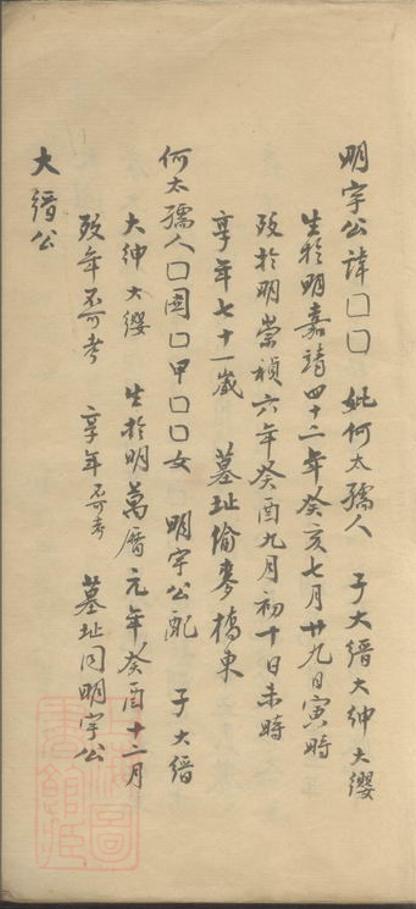 明宇公諱囗囗　妣何太孺人　子大縉大紳大纓
生於明嘉靖四十二年癸亥七月廿九日寅時
歿於明崇禎六年癸酉九月初十日未時
享年七十一歲　墓址偷麥橋東
何太孺人囗圄囗甲囗囗女　明宇公配　子大縉
大紳大纓　生於明萬曆元年癸酉十二月
歿年不可考　享年不可考　墓址同明宇公
大縉公
上海圖書館藏